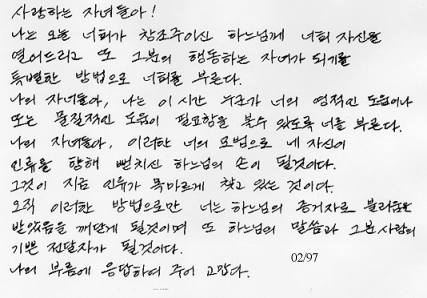 사랑하는 자녀들아!
나는 오늘 너희가 창조주이신 하느님께 너희 자신을
열어드리고 또 그분의 행동하는 자녀가 되기를
특별한 방법으로 너희를 부른다.
나의 자녀들아, 나는 이 시간 누군가 너의 영적인 도움이나
또는 물질적인 도움이 필요함을 볼수 있도록 너를 부른다.
나의 자녀들아, 이러한 너의 모범으로 네 자신이
인류를 향해 뻗치신 하느님의 손이 될것이다.
그것이 지금 인류가 목마르게 찾고 있는 것이다.
오직 이러한 방법으로만 너는 하느님의 증거자로 불리움을
받았음을 깨닫게 될것이며 또 하느님의 말씀과 그분 사랑의
기쁜 전달자가 될것이다.
나의 부름에 응답하여 주어 고맙다.
02/97